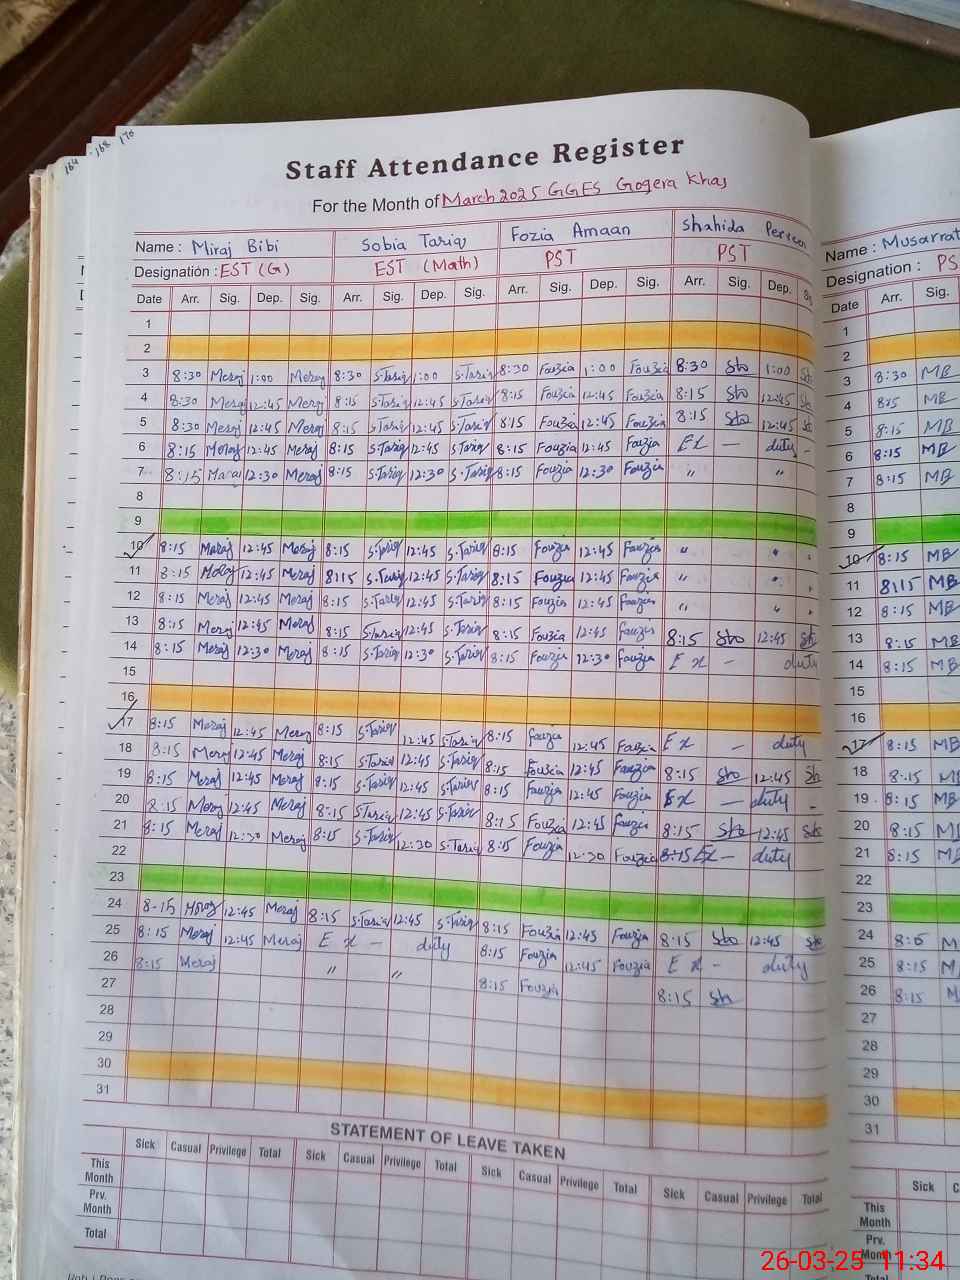 164 168 170
Staff Attendance Register
For the Month of March 2025 GGES Gogera Khas
Name : Miraj Bibi Sobia Tariq Fozia Amaan Shahida Perveen Name : Musarrat
Designation : EST (G) EST (Math) PST PST Designation : PS
Date Arr. Sig. Dep. Sig. Arr. Sig. Dep. Sig. Arr. Sig. Dep. Sig. Arr. Sig. Dep. Sig Date Arr. Sig.
1 1
2 2
3 8:30 Meraj 1:00 Meraj 8:30 S.Tariq 1:00 S.Tariq 8:30 Fouzia 1:00 Fouzia 8:30 Sho 1:00 Sh 3 8:30 MB
4 8:30 Meraj 12:45 Meraj 8:15 S.Tariq 12:45 S.Tariq 8:15 Fouzia 12:45 Fouzia 8:15 Sho 12:45 Sh 4 8:15 MB
5 8:30 Meraj 12:45 Meraj 8:15 S.Tariq 12:45 S.Tariq 8:15 Fouzia 12:45 Fouzia 8:15 Sho 12:45 Sh 5 8:15 MB
6 8:15 Meraj 12:45 Meraj 8:15 S.Tariq 12:45 S.Tariq 8:15 Fouzia 12:45 Fouzia Ex — duty - 6 8:15 MB
7 8:15 Maraj 12:30 Meraj 8:15 S.Tariq 12:30 S.Tariq 8:15 Fouzia 12:30 Fouzia " " 7 8:15 MB
8 8
9 9
10 8:15 Maraj 12:45 Meraj 8:15 S.Tariq 12:45 S.Tariq 8:15 Fouzia 12:45 Fouzia " " 10 8:15 MB
11 8:15 Meraj 12:45 Meraj 8:15 S.Tariq 12:45 S.Tariq 8:15 Fouzia 12:45 Fouzia " " 11 8:15 MB
12 8:15 Meraj 12:45 Meraj 8:15 S.Tariq 12:45 S.Tariq 8:15 Fouzia 12:45 Fouzia " " 12 8:15 MB
13 8:15 Meraj 12:45 Meraj 8:15 S.Tariq 12:45 S.Tariq 8:15 Fouzia 12:45 Fouzia 8:15 Sho 12:45 Sh 13 8:15 MB
14 8:15 Meraj 12:30 Meraj 8:15 S.Tariq 12:30 S.Tariq 8:15 Fouzia 12:30 Fouzia Ex - duty 14 8:15 MB
15 15
16 16
17 8:15 Meraj 12:45 Meraj 8:15 S.Tariq 12:45 S.Tariq 8:15 Fouzia 12:45 Fouzia Ex - duty 17 8:15 MB
18 8:15 Meraj 12:45 Meraj 8:15 S.Tariq 12:45 S.Tariq 8:15 Fouzia 12:45 Fouzia 8:15 Sho 12:45 Sh 18 8:15 M
19 8:15 Meraj 12:45 Meraj 8:15 S.Tariq 12:45 S.Tariq 8:15 Fouzia 12:45 Fouzia Ex — duty - 19 8:15 MB
20 8:15 Meraj 12:45 Meraj 8:15 S.Tariq 12:45 S.Tariq 8:15 Fouzia 12:45 Fouzia 8:15 Sho 12:45 Sho 20 8:15 M
21 8:15 Meraj 12:30 Meraj 8:15 S.Tariq 12:30 S.Tariq 8:15 Fouzia 12:30 Fouzia 8:15 Ex - duty 21 8:15 M
22 22
23 23
24 8-15 Meraj 12:45 Meraj 8:15 S.Tariq 12:45 S.Tariq 8:15 Fouzia 12:45 Fouzia 8:15 Sho 12:45 Sh 24 M
25 8:15 Meraj 12:45 Meraj Ex - duty 8:15 Fouzia 12:45 Fouzia Ex - duty 25 8:15 M
26 8:15 Meraj " " 8:15 Fouzia 8:15 Sh 26 8:15 M
27 27
28 28
29 29
30 30
31 31
STATEMENT OF LEAVE TAKEN
Sick Casual Privilege Total Sick Casual Privilege Total Sick Casual Privilege Total Sick Casual Privilege Total Sick C
This Month This Month
Prv. Month Prv. Month
Total Total
26-03-25 11:34